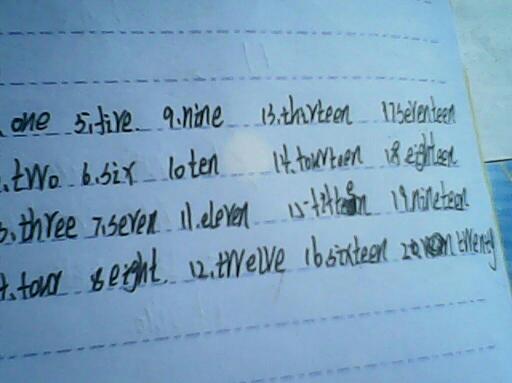 . one 5.five 9.nine 13.thirteen 17seventeen
.two 6.six 10ten 14.fourteen 18eighteen
3.three 7.seven 11.eleven 15 19.nineteen
4.four 8eight. 12.twelve 16sixteen 20 twenty